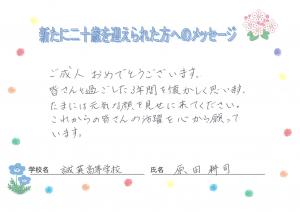 新たに二十歳を迎えられた方へのメッセージ
ご成人おめでとうございます。
皆さんと過ごした3年間を懐かしく思います。
たまには元気な顔を見せに来てください。
これからの皆さんの活躍を心から願って
います。
学校名 誠英高等学校 氏名 原田 耕司